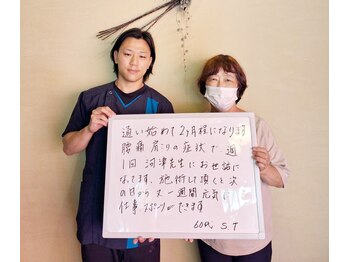 通い始めて2ヶ月程になります
腰痛肩こりの症状で 週
1回 河津先生にお世話に
なってます。施術して頂くと次
の日から又一週間元気に
仕事 スポーツができます
60代 S.T